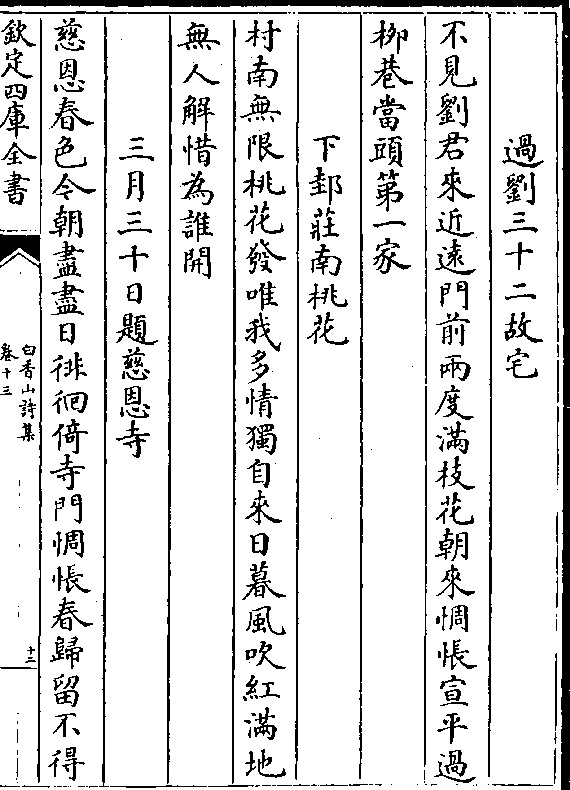 過劉三十二故宅
不見劉君來近遠門前兩度滿枝花朝來惆悵宣平過
柳巷當頭第一家
下邽莊南桃花
村南無限桃花發唯我多情獨自來日暮風吹紅滿地
無人解惜為誰開
三月三十日題慈恩寺
慈恩春色今朝盡盡日徘徊倚寺門惆悵春歸留不得
欽定四庫全書
白香山詩集
卷十三
十三